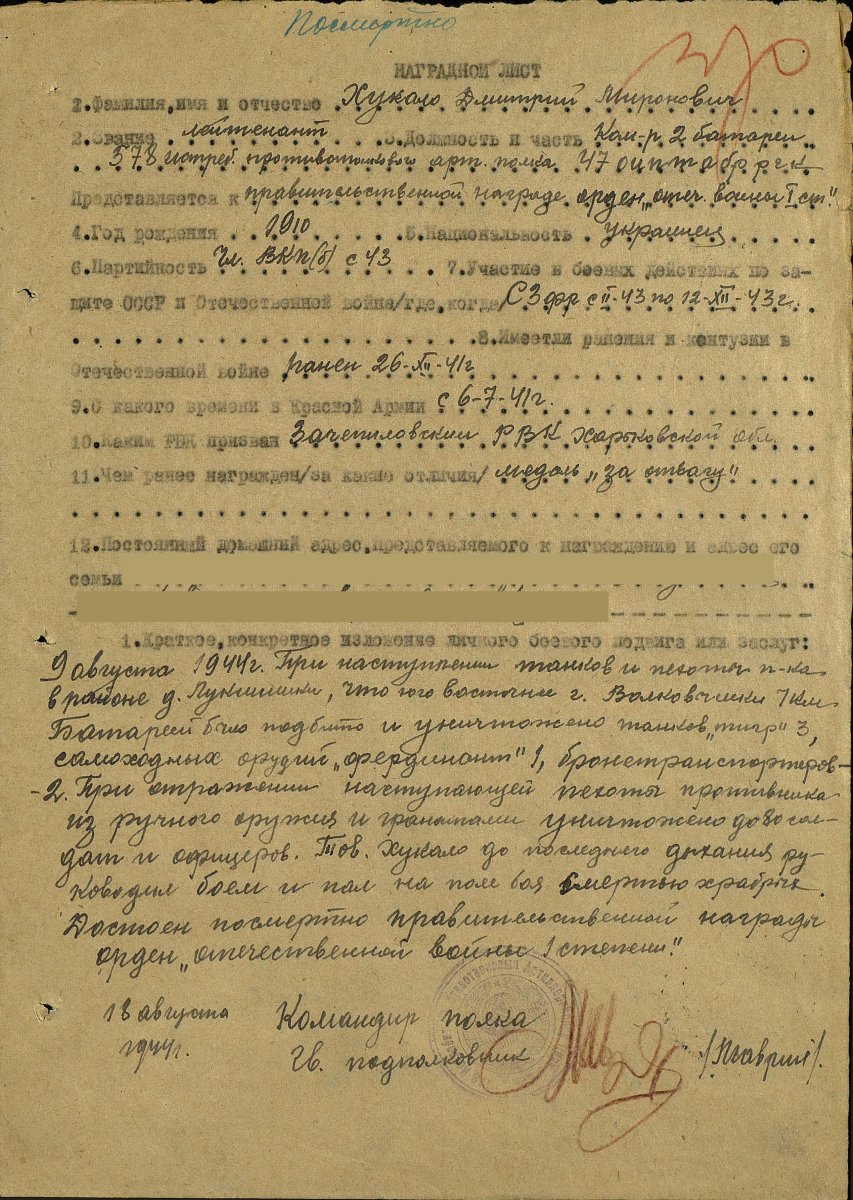 Посмертно
НАГРАДНОЙ ЛИСТ
1.Фамилия,имя и отчество Хукало Дмитрий Миронович
2.Звание лейтенант 3.Должность и часть Ком-р 2 батареи
578 истреб. противотанкового арт. полка 47 оиптабр ргк
Представляется к правительственной награде орден „отеч. войны I ст."
4.Год рождения 1910 5.Национальность украинец
6.Партийность Чл. ВКП(б) с 43 7.Участие в боевых действиях по за-
щите СССР и Отечественной войне/где,когда/ СЗфр с II-43 по 12-XII-43г.
8.Имеет ли ранения и контузии в
Отечественной войне ранен 26-XII-41г
9.С какого времени в Красной Армии с 6-7-41г.
10.Каким РВК призван Зачепиловским РВК Харьковской обл
11.Чем ранее награжден/за какие отличия/ медаль „за отвагу"
12.Постоянный домашний адрес,представляемого к награждению и адрес его
семьи
1.Краткое,конкретное изложение личного боевого подвига или заслуг:
9 августа 1944г. При наступлении танков и пехоты п-ка
в районе д. Лукшишки, что юго восточнее г. Волковчишки 7 км.
Батареей было подбито и уничтожено танков „тигр" 3,
самоходных орудий „фердинант" 1, бронетранспортеров-
-2. При отражении наступающей пехоты противника
из ручного оружия и гранатами уничтожено до 80 сол-
дат и офицеров. Тов. Хукало до последнего дыхания ру-
ководил боем и пал на поле боя смертью храбрых.
Достоен посмертно правительственной награды
орден „отечественной войны 1 степени."
18 августа Командир полка
1944г. Гв. подполковник